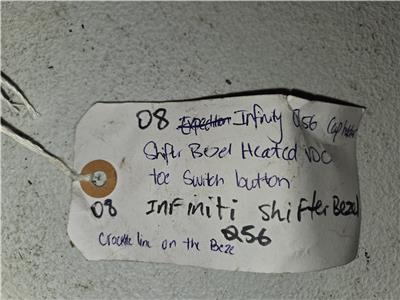 08 Expedition Infinity Q56 Cup holder
Shifter Bezel Heated VDC
toe Switch button
08 INFiniti Shifter Bezel
Q56
Crackle line on the Beze